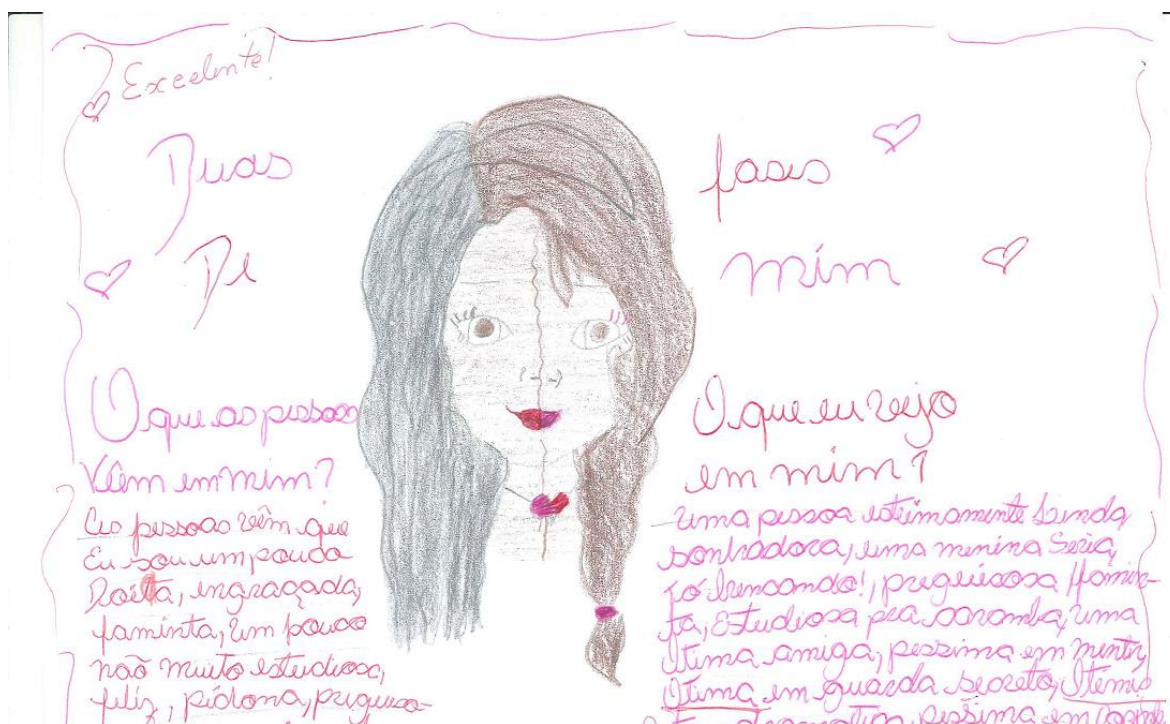 Excelente!
Duas fases
De mim
O que as pessoas
Vêem em mim?
As pessoas vêm que
Eu sou um pouco
Doida, engraçada,
faminta, um pouco
não muito estudiosa,
feliz, pidona, preguiso-
O que eu vejo
em mim?
uma pessoa linda,
sonhadora, uma menina Seria,
tó brincando!, preguisosa, famin-
ta, Estudiosa pra caramba, uma
Ótima amiga, pessima em mentir,
Ótima em guarda secreto,
pessima em